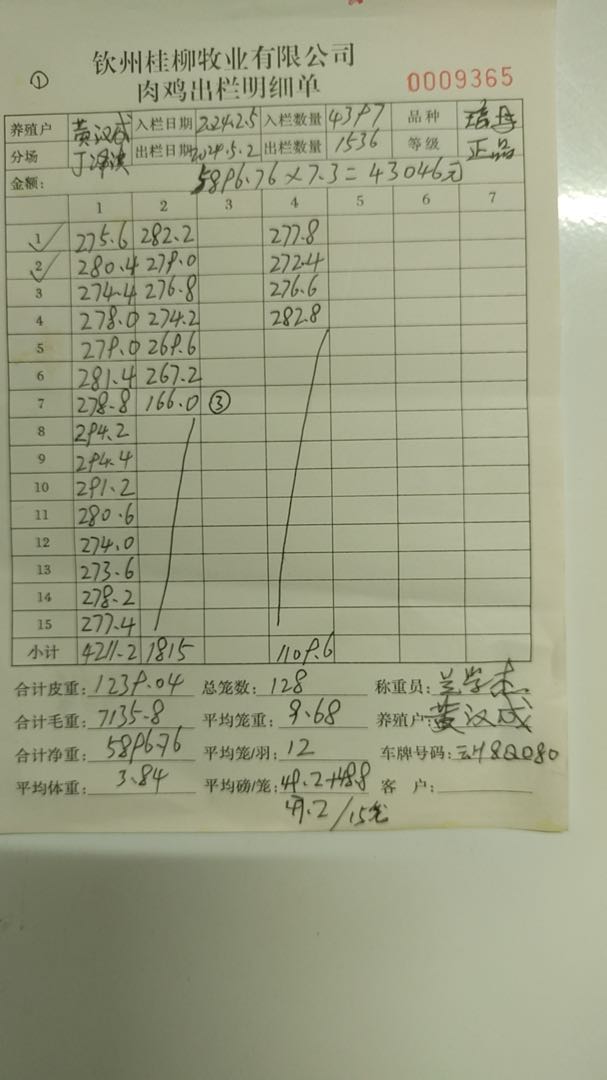 ①
钦州桂柳牧业有限公司
肉鸡出栏明细单
0009365
养殖户 黄汉成 入栏日期 2024.2.5 入栏数量 4397 品种
分场 出栏日期 2024.5.2 出栏数量 1536 等级 正品
金额: 5896.76×7.3=43046元
1 2 3 4 5 6 7
1 275.6 282.2 277.8
2 280.4 279.0 272.4
3 274.4 276.8 276.6
4 278.0 274.2 282.8
5 279.0 269.6
6 281.4 267.2
7 278.8 166.0 ③
8 294.2
9 294.4
10 291.2
11 280.6
12 274.0
13 273.6
14 278.2
15 277.4
小计 4211.2 1815 1109.6
合计皮重: 1239.04 总笼数: 128 称重员: 兰学杰
合计毛重: 7135.8 平均笼重: 9.68 养殖户 黄汉成
合计净重: 5896.76 平均笼/羽: 12 车牌号码:
平均体重: 3.84 平均磅/笼: 49.2+48.8 客 户:
49.2/15笼